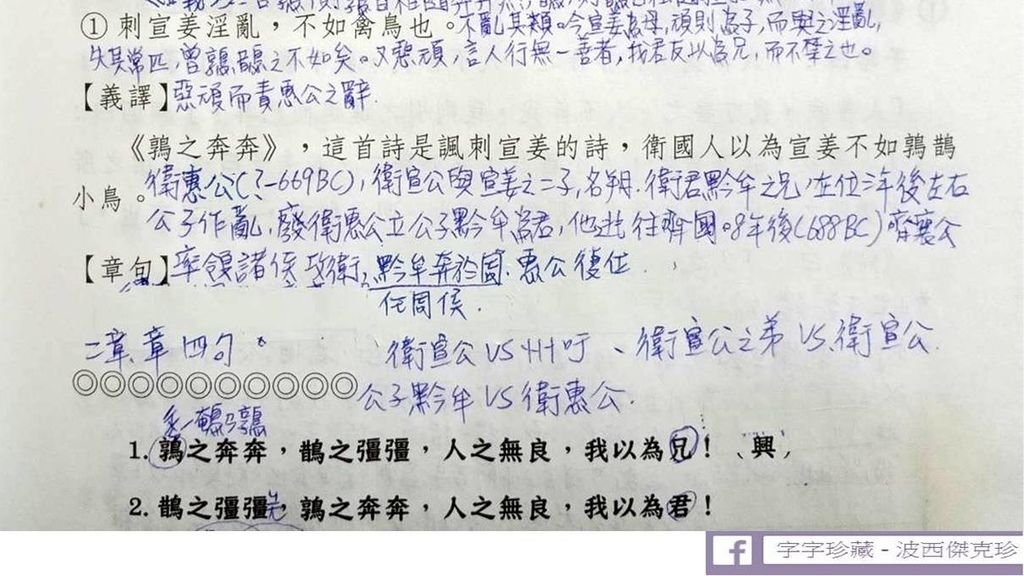 ①刺宣姜淫亂，不如禽鳥也。不亂其類。今宣姜為母，頑則為子，而與之淫亂，
失其常匹，曾鶉鵲之不如矣。又惡頑，言人行無一善者，我君反以為兄，而不禁之也。
【義譯】惡頑而責惠公之辭.
《鶉之奔奔》，這首詩是諷刺宣姜的詩，衛國人以為宣姜不如鶉鵲
小鳥。衛惠公(?-669BC)，衛宣公與宣姜之二子，名朔.衛君黔牟之兄，在位三年後左右
公子作亂，廢衛惠公立公子黔牟為君，他逃往齊國。8年後(688BC)齊襄公
【章句】率領諸侯 衛，黔牟奔於周.惠公復位.
二章，章四句。
衛宣公VS州吁、衛宣公之弟VS.衛宣公.
◎◎◎◎◎◎◎◎◎◎公子黔牟VS衛惠公.
1. 鶉之奔奔，鵲之彊彊，人之無良，我以為兄！、興，
2. 鵲之彊彊，鶉之奔奔，人之無良，我以為君！
字字珍藏 - 波西傑克珍